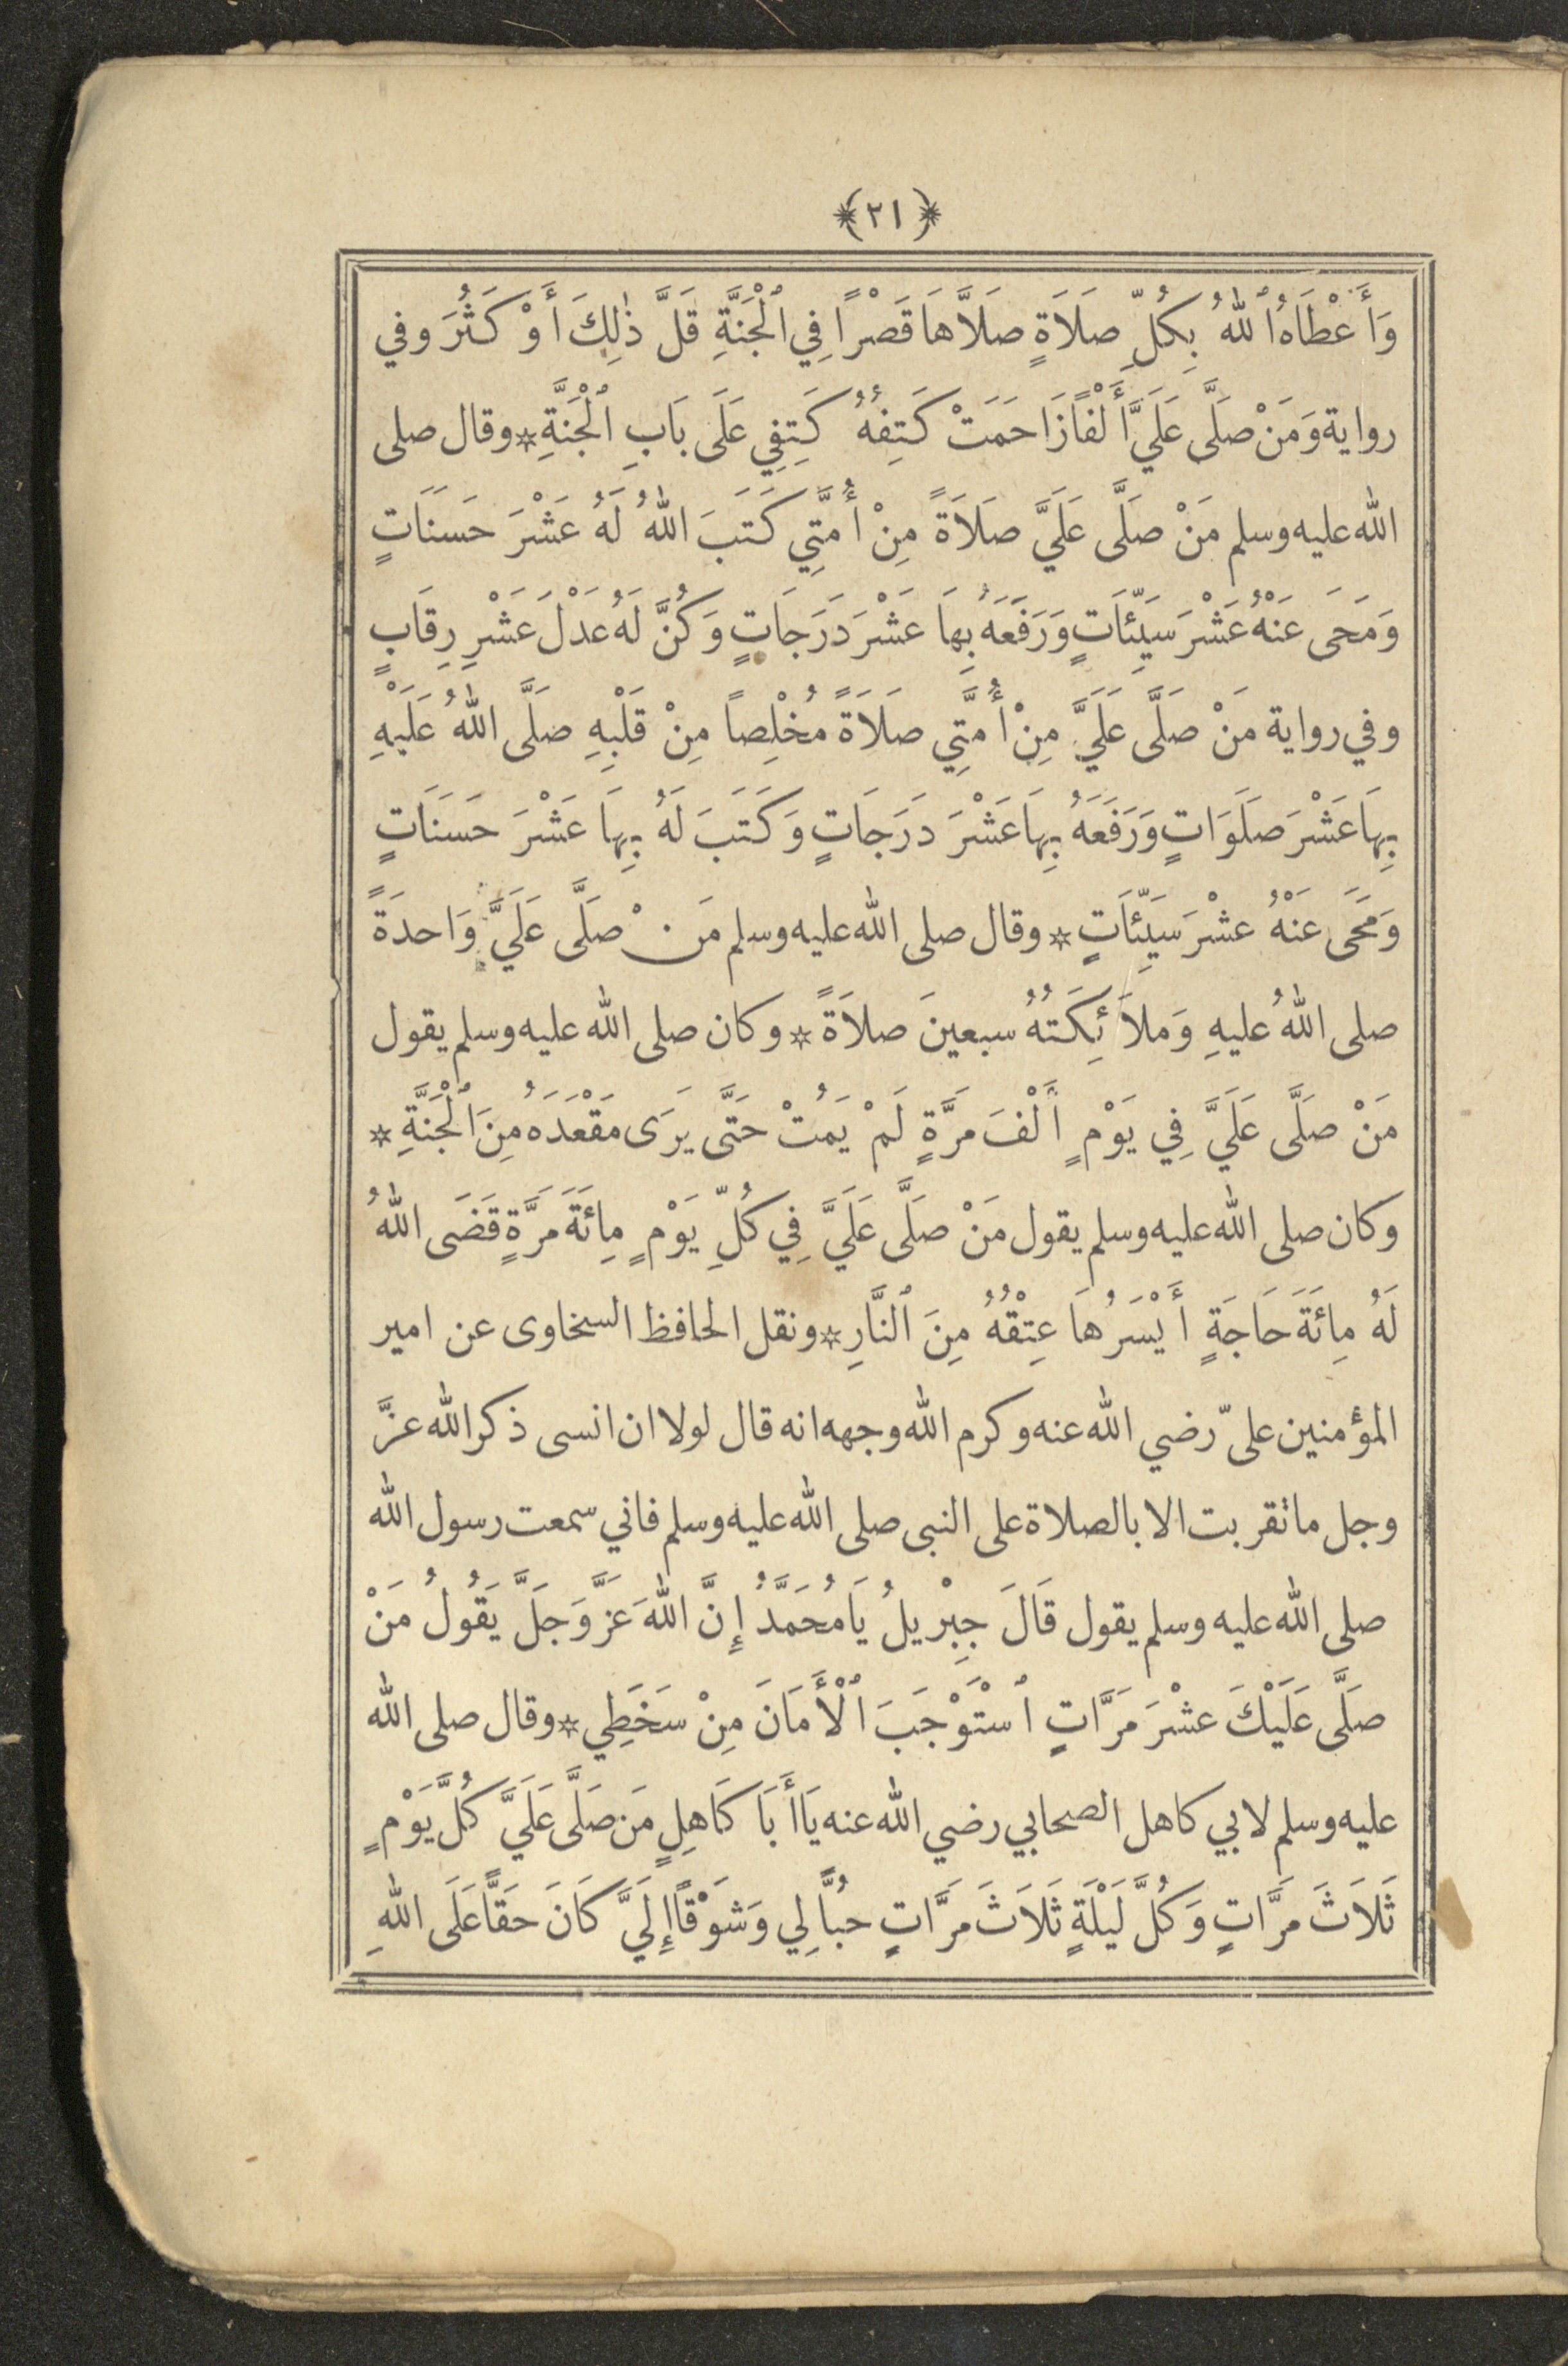 ﴿٢١﴾
وَأَعْطَاهُ ٱللهُ بِكُلِّ صَلَاةٍ صَلَّاهَا قَصْرًا فِي ٱلْجَنَّةِ قَلَّ ذٰلِكَ أَوْ كَثُرَ وفي
رواية وَمَنْ صَلَّى عَلَيَّ أَلْفًا زَاحَمَتْ كَتِفُهُ كَتِفِي عَلَى بَابِ ٱلْجَنَّةِ * وقال صلى
الله عليه وسلم مَنْ صَلَّى عَلَيَّ صَلَاةً مِنْ أُمَّتِي كَتَبَ اللهُ لَهُ عَشْرَ حَسَنَاتٍ
وَمَحَى عَنْهُ عَشْرَ سَيِّئَاتٍ وَرَفَعَهُ بِهَا عَشْرَ دَرَجَاتٍ وَكُنَّ لَهُ عَدْلَ عَشْرِ رِقَابٍ
وفي رواية مَنْ صَلَّى عَلَيَّ مِنْ أُمَّتِي صَلَاةً مُخْلِصاً مِنْ قَلْبِهِ صَلَّى اللهُ عَلَيْهِ
بِهَا عَشْرَ صَلَوَاتٍ وَرَفَعَهُ بِهَا عَشْرَ دَرَجَاتٍ وَكَتَبَ لَهُ بِهَا عَشْرَ حَسَنَاتٍ
وَمَحَى عَنْهُ عَشْرَ سَيِّئَاتٍ * وقال صلى الله عليه وسلم مَنْ صَلَّى عَلَيَّ وَاحدَةً
صلى اللهُ عليهِ وَملَائِكَتُهُ سبعينَ صلاَةً * وكان صلى الله عليه وسلم يقول
مَنْ صَلَّى عَلَيَّ فِي يَوْمٍ أَلْفَ مَرَّةٍ لَمْ يَمُتْ حَتَّى يَرَى مَقْعَدَهُ مِنَ ٱلْجَنَّةِ *
وكان صلى الله عليه وسلم يقول مَنْ صَلَّى عَلَيَّ فِي كُلِّ يَوْمٍ مِائَةَ مَرَّةٍ قَضَى اللهُ
لَهُ مِائَةَ حَاجَةٍ أَيْسَرُهَا عِتْقُهُ مِنَ ٱلنَّارِ * ونقل الحافظ السخاوى عن امير
المؤمنين علىّ رضي الله عنه وكرم الله وجهه انه قال لولا ان انسى ذكر الله عزَّ
وجل ما تقربت الا بالصلاة على النبى صلى الله عليه وسلم فاني سمعت رسول الله
صلى الله عليه وسلم يقول قَالَ جِبْرِيلُ يَا مُحَمَّدُ إِنَّ اللهَ عَزَّ وَجَلَّ يَقُولُ مَنْ
صَلَّى عَلَيْكَ عَشْرَ مَرَّاتٍ ٱسْتَوْجَبَ ٱلْأَمَانَ مِنْ سَخَطِي * وقال صلى الله
عليه وسلم لابي كاهل الصحابي رضي الله عنه يَا أَبَا كَاهِلٍ مَن صَلَّى عَلَيَّ كُلَّ يَوْمٍ
ثَلَاثَ مَرَّاتٍ وَكُلَّ لَيْلَةٍ ثَلَاثَ مَرَّاتٍ حُبًّا لِي وَشَوْقًا إِلَيَّ كَانَ حَقًّا عَلَى اللهِ